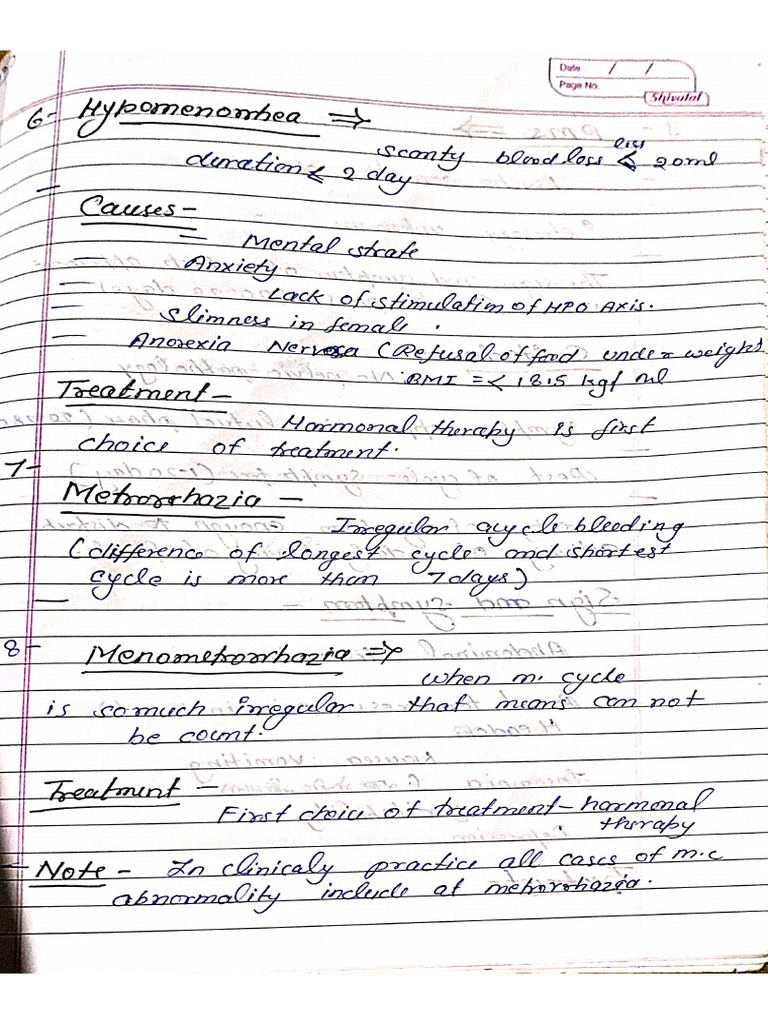 Date / /
Page No.
Shivalal
6- Hypomenorrhea ⇒
sconty bloodloss less < 20ml
duration < 2 day
Causes -
Mental strate
Anxiety
Lack of stimulation of HPO Axis.
Slimness in female.
Anorexia Nervosa (Refusal of food under weight
BMI = < 18.5 kg/ ml
Treatment -
Hormonal therapy is first
choice of treatment.
7-
Metrorrhazia -
Irregular acycle bleeding
(difference of longest cycle and shortest
cycle is more than 7days)
8- Menometrorrhazia ⇒
when m. cycle
is somuch irregular that means can not
be count.
Treatment -
First choice of treatment - harmonal
therapy
Note - In clinicaly practice all cases of m.c
abnormality include at metrorrhazia.